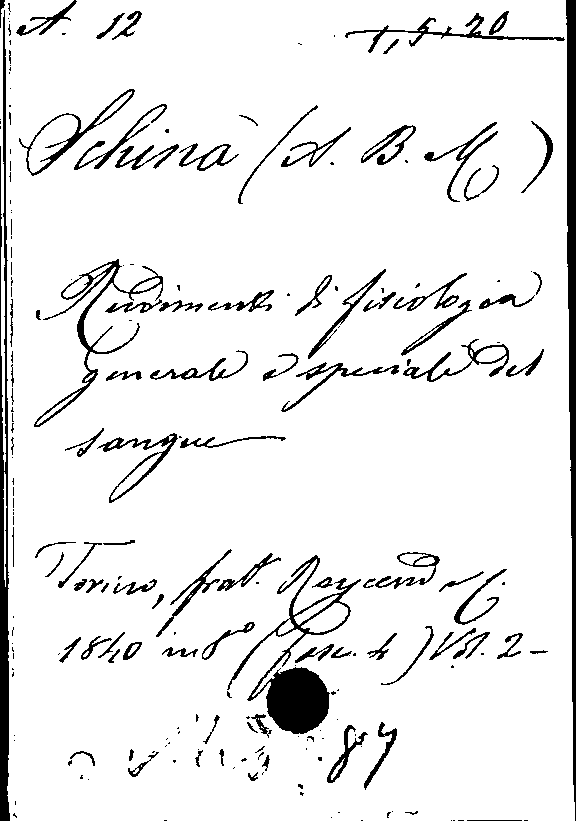 A. 12 1,5,20
Schinà (A. B. M.)
Rudimenti di fisiologia
generale e speciale del
sangue
Torino, frat. Reycend e C.
1840 in 8° (fasc. 4) Vol. 2 -
87